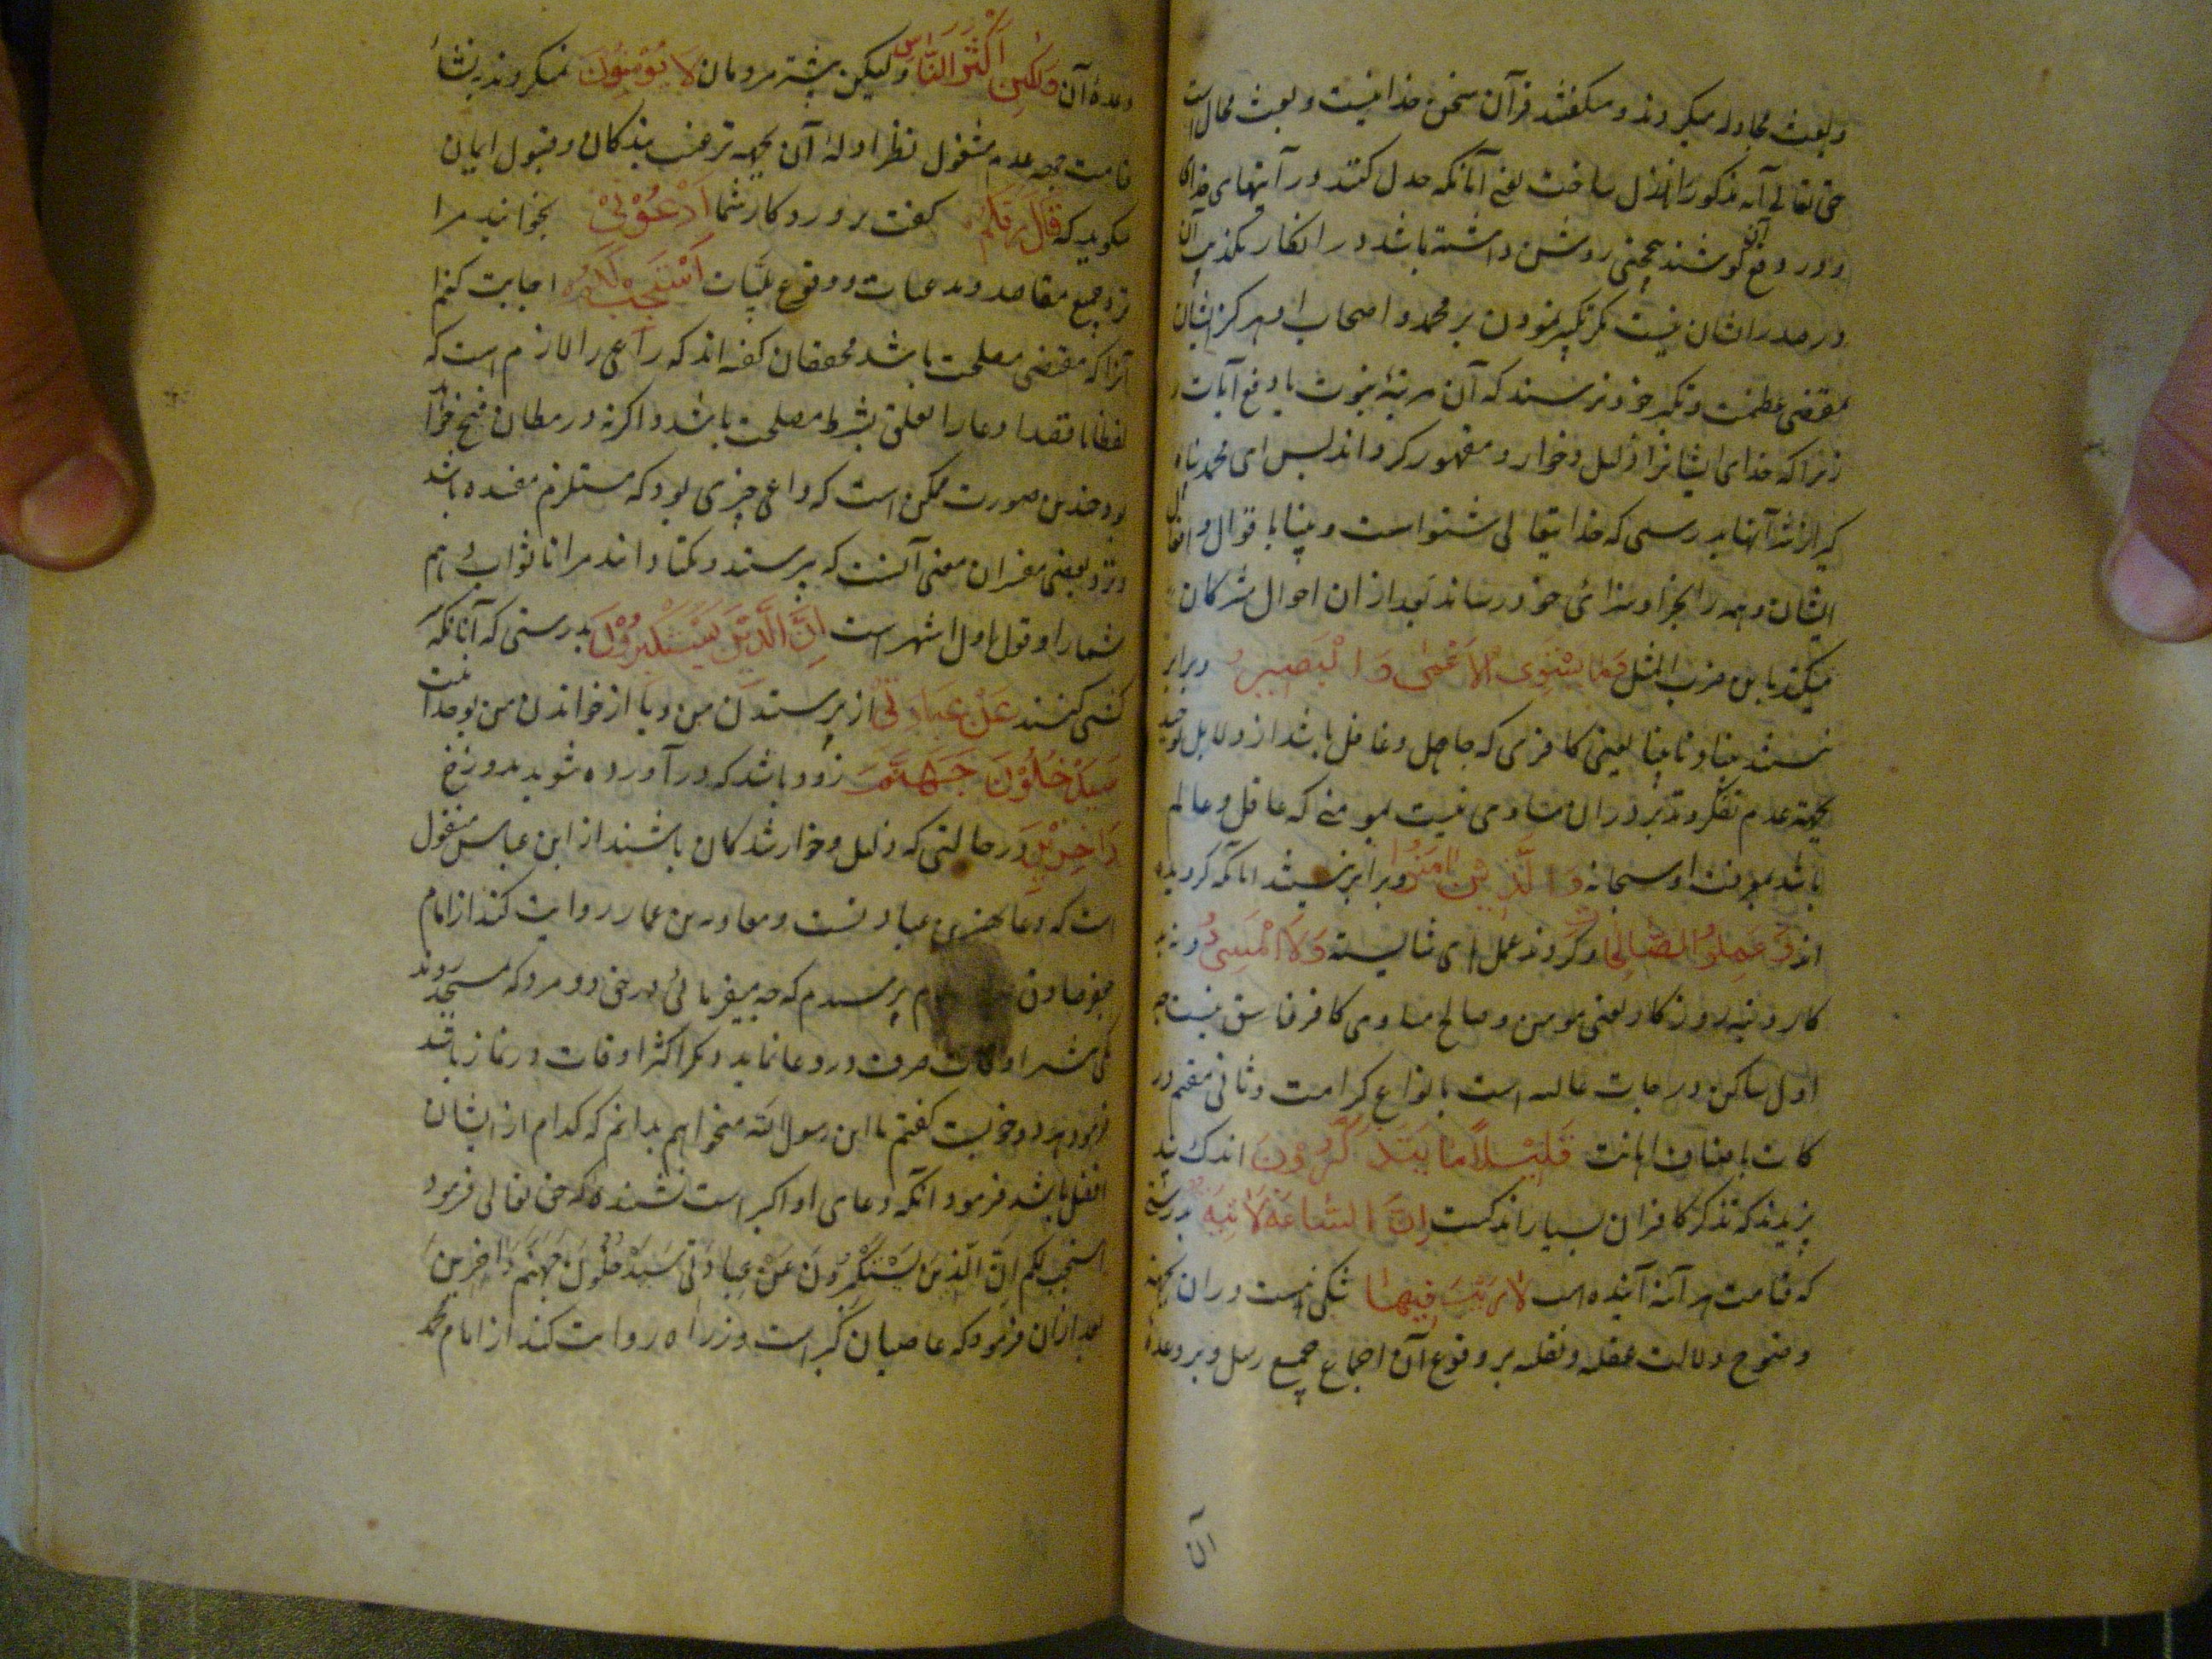 و بعث مجادله میکردند و میگفتند قرآن سخن خدا نیست و بعث محال است
حق تعالی آیه مذکور را انزل ساخت یعنی آنانکه جدل کنند در آیتهای خدای
و در دفع آن کوشند بیحجتی روشن داشته باشد در انکار و تکذیب آن
در صدر ایشان نیست مگر تکبر نمودن بر محمد و اصحاب او هرگز ایشان
بمقتضی عظمت و تکبر خود نرسند که آن مرتبهٔ نبوت یا دفع آیات
زیرا که خدای ایشانرا ذلیل و خوار و مقهور گرداند پس ای محمد پناه
گیر از شر آنها بدرستی که خدایتعالی شنواست و بینا باقوال و افعال
ایشان و همه را بجزا و سزای خود رساند بعد از آن احوال مشرکان
میکند باین ضرب المثل وَمَا یَسْتَوِی الْاَعْمٰی وَالْبَصِیرُ و برابر
نیستند بینا و نابینا یعنی کافری که جاهل و غافل باشد از دلایل توحید
بجهة عدم تفکر و تدبر در آن مساوی نیست بمومنی که عاقل و عالم
باشد بمعرفت او سبحانه وَالَّذِینَ اٰمَنُوا و برابر نیستند آنانکه گرویده
اند وَعَمِلُوا الصَّالِحَاتِ و کردند عمل های شایسته وَلَا الْمُسِیءُ و نه بد
کار و تیره روزکار یعنی مومن و صالح مساوی کافر فاسق نیست چه
اول ساکن درجات عالیه است بانواع کرامت و ثانی مقیم در
کات باصناف اهانت قَلِیْلًا مَا یَتَذَکَّرُوْنَ اندک پند
پذیرند که تذکر کافران بسیار اندکست اِنَّ السَّاعَةَ لَاٰتِیَةٌ بدرستی
که قیامت هر آینه آینده است لَا رَیْبَ فِیْهَا شکی نیست در آن بجهة
وضوح دلالت عقلیه و نقلیه بر وقوع آن اجماع جمیع رسل و بر وعدهٔ
آن
وعدهٔ آن وَلٰکِنَّ اَکْثَرَ النَّاسِ ولیکن بیشتر مردمان لَا یُؤْمِنُوْنَ نمیگروند بنشأ
قامت بجهه عدم شغول نظر ادلهٔ آن بجهه ترغیب بندکان و قبول ایمان
میگوید که قَالَ رَبُّکُمُ گفت پروردکار شما اُدْعُوْنِیْ بخوانید مرا
نزد جمیع مقاصد و مدعیات و وقوع بلیات اَسْتَجِبْ لَکُمْ اجابت کنم
آنرا که مقتضی مصلحت باشد محققان گفته اند که داعی را لازم است که
لفظا یا قصدا دعا را معلق بشرط مصلحت باشد و اگرنه در مظان قبح خواهد
بود چه در این صورت ممکن است که داعی چیزی بود که مستلزم مفسده باشد
و نزد بعضی مفسران معنی آنست که بپرستید و یکتا دانید مرا تا ثواب دهم
شما را و قول اول اشهر است اِنَّ الَّذِیْنَ یَسْتَکْبِرُوْنَ بدرستی که آنانکه
گردنکشی کنند عَنْ عِبَادَتِیْ از پرستیدن من و یا از خواندن من بوحدانیت
سَیَدْخُلُوْنَ جَهَنَّمَ زود باشد که درآورده شوند بدوزخ
دَاخِرِیْنَ در حالتی که ذلیل و خوار شدکان باشند از ابن عباس منقول
است که دعا بهترین عبادتست و معاویه بن عمار روایت کند از امام
جعفر صادق پرسیدم که چه میفرمائی در حق دو مرد که بمسجد روند
یکی بیشتر اوقات صرف در دعا نماید و دیگر اکثر اوقات در نماز باشد
فرمود هر دو خوبست گفتم یا ابن رسول الله میخواهم بدانم که کدام از ایشان
افضل باشد فرمود آنکه دعای او اکبر است نشنیدهٔ که حق تعالی فرمود
استجب لکم اِنَّ الَّذِیْنَ یَسْتَکْبِرُوْنَ عَنْ عِبَادَتِیْ سَیَدْخُلُوْنَ جَهَنَّمَ دَاخِرِیْنَ
بعد از آن فرمود که عاصیان کبر است و زراره روایت کند از امام محمد